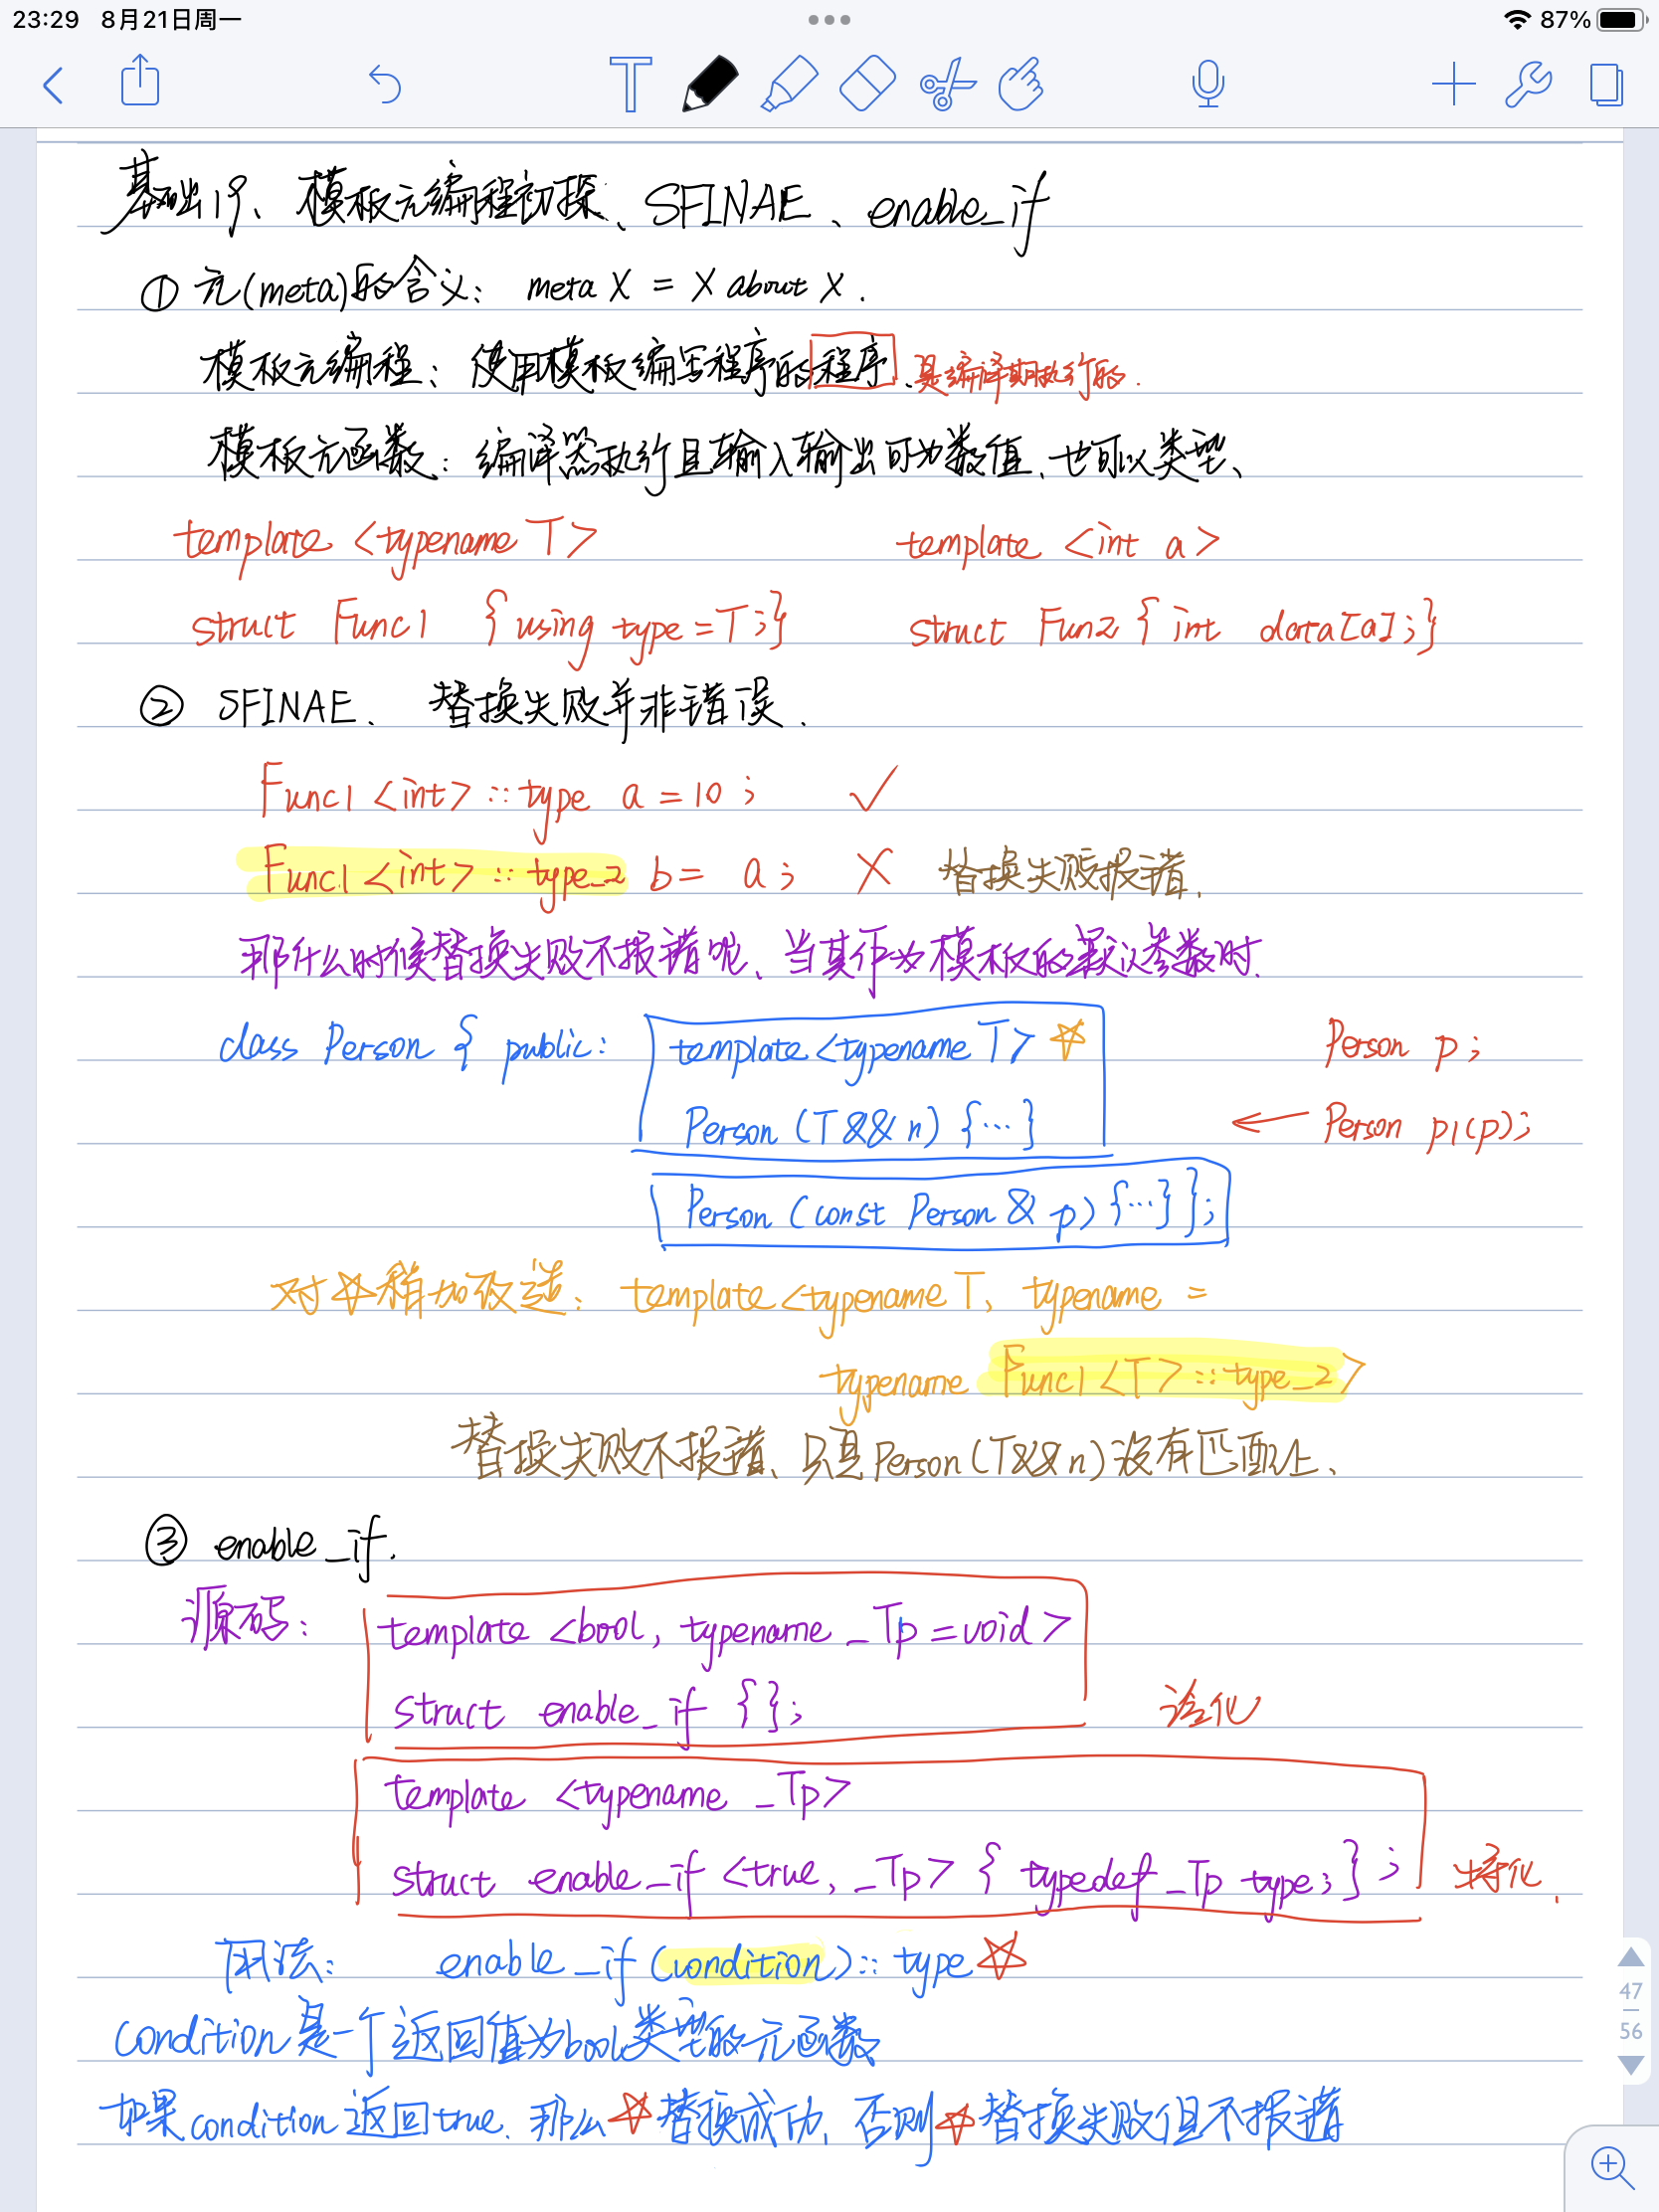 23:29 8月21日周一
87%
基础19、模板元编程初探、SFINAE、enable_if
① 元(meta)的含义: meta X = X about X.
模板元编程: 使用模板编写程序的程序. 是编译期执行的.
模板元函数: 编译器执行且输入输出可为数值、也可以类型、
template <typename T> template <int a>
struct Func1 { using type = T;} struct Fun2 { int data[a];}
② SFINAE. 替换失败并非错误.
Func1 <int> :: type a = 10; ✓
Func1 <int> :: type_2 b = a; X 替换失败报错.
那什么时候替换失败不报错呢、当其作为模板的默认参数时.
class Person { public: template <typename T> ☆ Person p;
Person (T && n) {...} ← Person p1(p);
Person (const Person & p) {...} };
对☆稍加改造: template <typename T, typename =
typename Func1 <T> :: type_2>
替换失败不报错、只是Person (T&& n) 没有匹配上、
③ enable_if.
源码: template <bool, typename _Tp = void>
struct enable_if { }; 泛化
template <typename _Tp>
struct enable_if <true, _Tp> { typedef _Tp type; } ; 特化.
用法: enable_if (condition) :: type ☆
condition 是一个返回值为bool类型的元函数
如果 condition 返回true. 那么☆替换成功, 否则☆替换失败但不报错
47
56